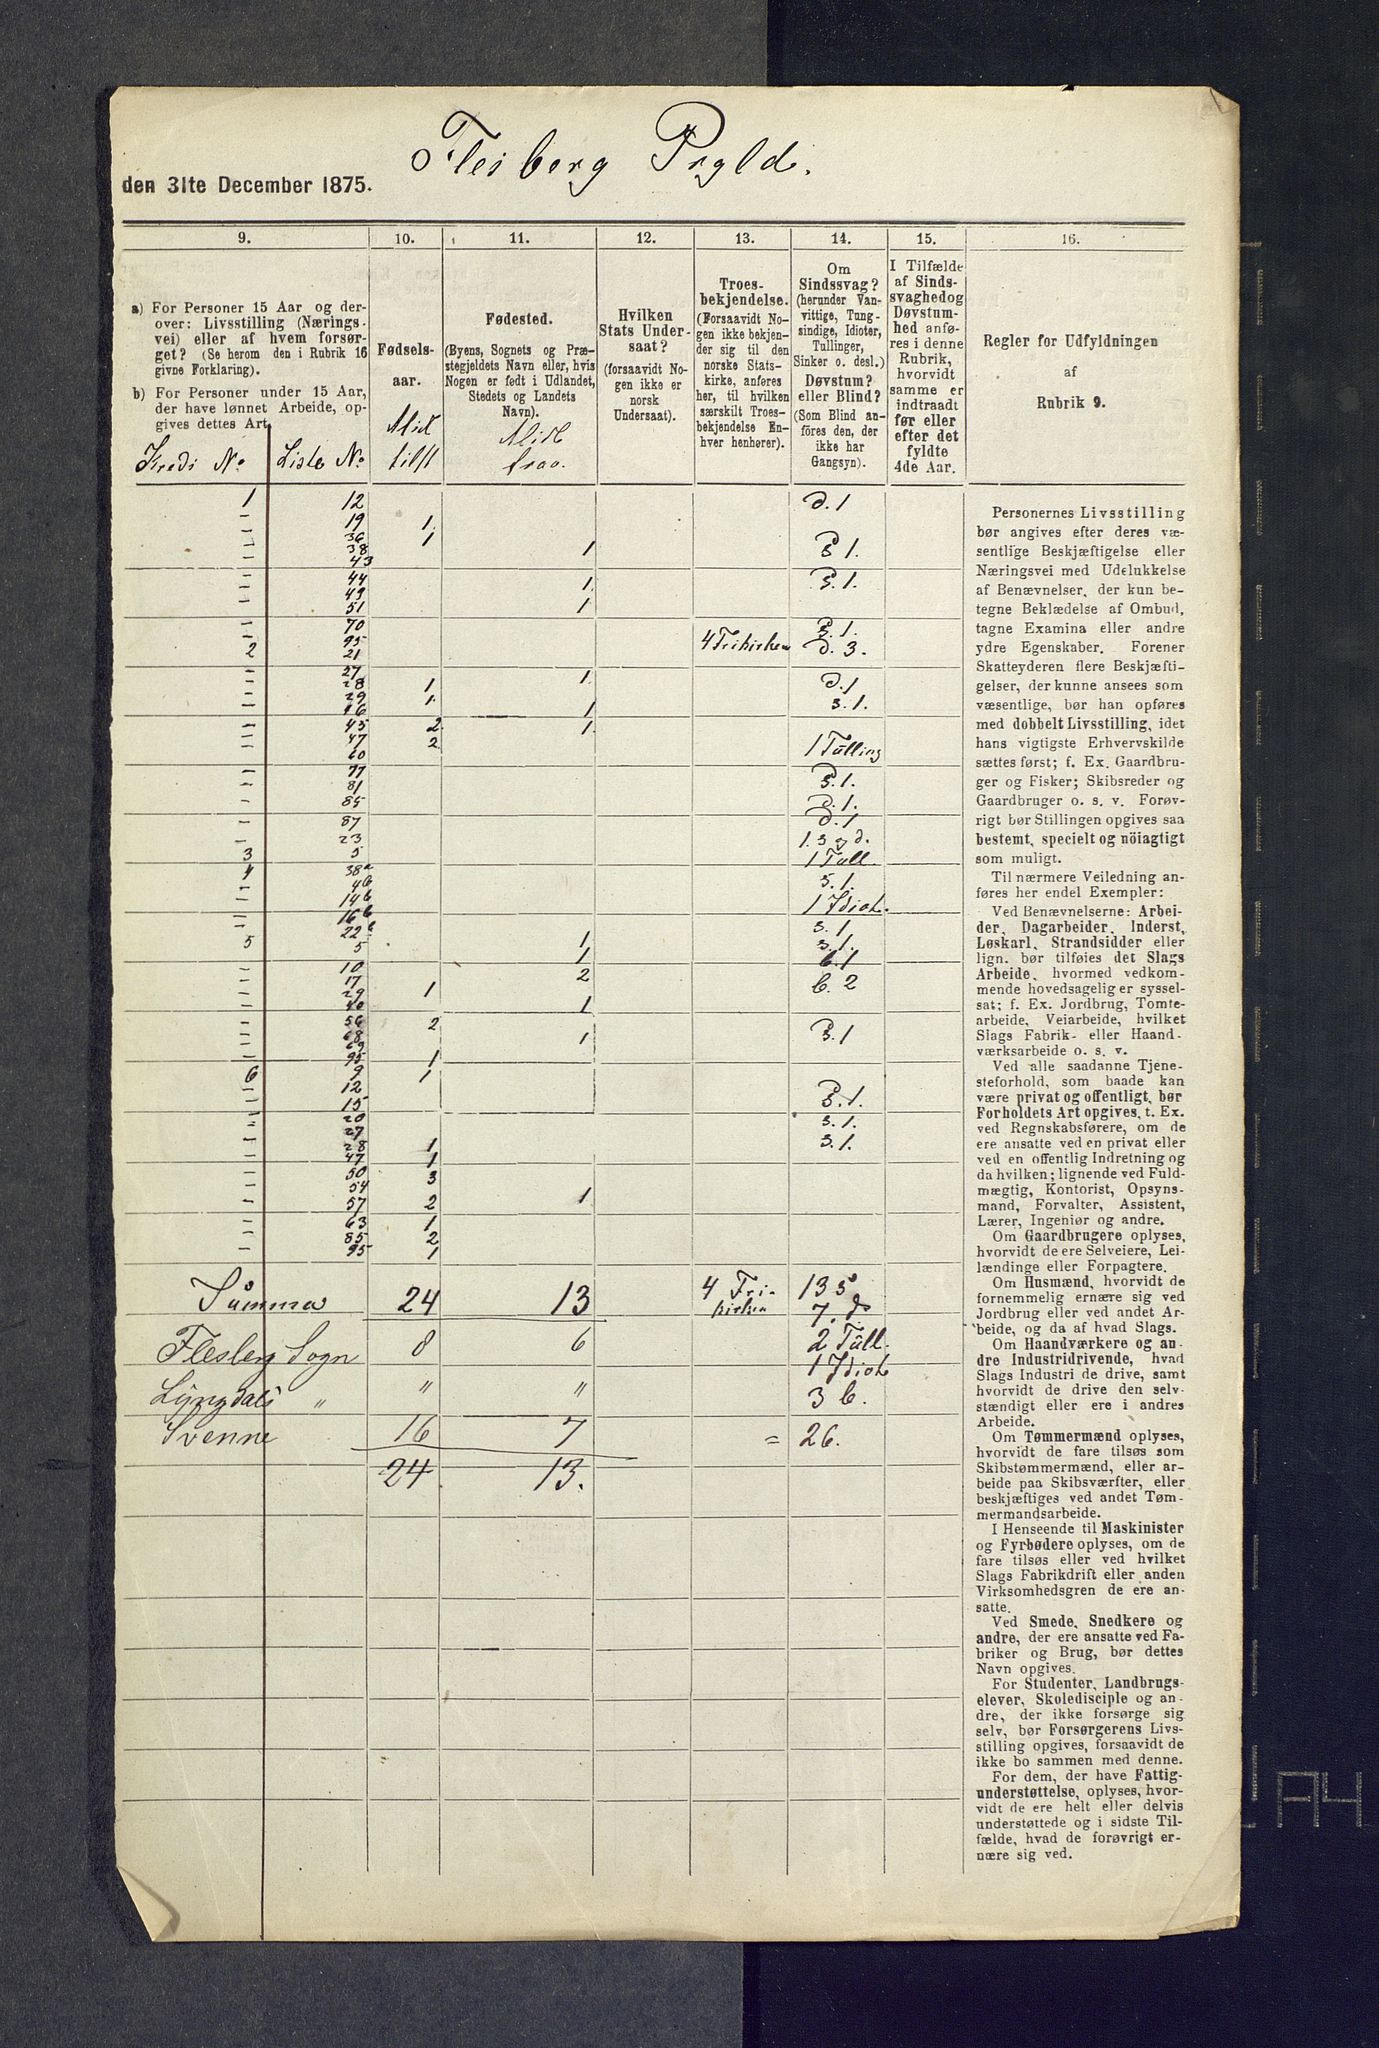 Flesberg Prgld.
den 31te December 1875.
9.
10.
11.
12.
13.
14.
15.
16.
a) For Personer 15 Aar og der-
over: Livsstilling (Nærings-
vei) eller af hvem forsør-
get? (Se herom den i Rubrik 16
givne Forklaring).
b) For Personer under 15 Aar,
der have lønnet Arbeide, op-
gives dettes Art.
Kreds No
Liste No
Fødsels-
aar.
Mist
tilst
Fødested.
(Byens, Sognets og Præ-
stegjeldets Navn eller, hvis
Nogen er født i Udlandet,
Stedets og Landets
Navn).
Mist
frav.
Hvilken
Stats Under-
saat?
(forsaavidt No-
gen ikke er
norsk
Undersaat).
Troes-
bekjendelse.
(Forsaavidt No-
gen ikke bekjen-
der sig til den
norske Stats-
kirke, anføres
her, til hvilken
særskilt Troes-
bekjendelse En-
hver henhører).
Om
Sindssvag?
(herunder Van-
vittige, Tung-
sindige, Idioter,
Tullinger,
Sinker o. desl.)
Døvstum?
eller Blind?
(Som Blind an-
föres den, der
ikke har
Gangsyn).
I Tilfælde
af Sinds-
svaghed og
Døvstum-
hed anfø-
res i denne
Rubrik,
hvorvidt
samme er
indtraadt
før eller
efter det
fyldte
4de Aar.
Regler for Udfyldningen
af
Rubrik 9.
1 12 d. 1
" 19 1.
" 36 1
" 38 1 S 1.
" 43
" 44 1. S. 1.
" 49
" 51 1
" 70 S. 1.
" 95 4 Frikirken d. 3.
2 21
" 27 1.
" 28 1 d. 1
" 29 1. s. 1.
" 46 1
" 45 2 1.
" 47 2
" 60 1 Tulling
" 77
" 81 S. 1.
" 85 d. 1.
" 87 d. 1
" 23 1. s og d.
3 5 1 Tull.
4 38a
" 4b s. 1.
" 14b 1 Idiot.
" 16b
" 22 s. 1
5 5 1 s. 1.
" 10 1 b. 1
" 17 2 b. 2
" 29 1
" 40 1
" 56 2
" 68 1 S. 1
" 69
" 95 1
6 9 1
" 12
" 15 S. 1.
" 20 s. 1.
" 27
" 28 1 s. 1.
" 47 1
" 50 3
" 54
" 57 2 1
" 63 1
" 85 2
" 95 1
Summa 24 13 4 Fri-
kirken 13 s
7. d.
Flesberg Sogn 8 6 2 Tull.
1 Idiot
Lyngdals " " " 3 b.
Svenne 16 7 = 26.
24 13.
Personernes Livsstilling
bør angives efter deres væ-
sentlige Beskjæftigelse eller
Næringsvei med Udelukkelse
af Benævnelser, der kun be-
tegne Beklædelse af Ombud,
tagne Examina eller andre
ydre Egenskaber. Forener
Skatteyderen flere Beskjæfti-
gelser, der kunne ansees som
væsentlige, bør han opføres
med dobbelt Livsstilling, idet
hans vigtigste Erhvervskilde
sættes først; f. Ex. Gaardbru-
ger og Fisker; Skibsreder og
Gaardbruger o. s. v. Forøv-
rigt bør Stillingen opgives saa
bestemt, specielt og nöiagtigt
som muligt.
Til nærmere Veiledning an-
føres her endel Exempler:
Ved Benævnelserne: Arbei-
der, Dagarbeider, Inderst,
Løskarl, Strandsidder eller
lign. bør tilføies det Slags
Arbeide, hvormed vedkom-
mende hovedsagelig er syssel-
sat; f. Ex. Jordbrug, Tomte-
arbeide, Veiarbeide, hvilket
Slags Fabrik- eller Haand-
værksarbeide o. s. v.
Ved alle saadanne Tjene-
steforhold, som baade kan
være privat og offentligt, bør
Forholdets Art opgives, t. Ex.
ved Regnskabsførere, om de
ere ansatte ved en privat eller
ved en offentlig Indretning og
da hvilken; lignende ved Fuld-
mægtig, Kontorist, Opsyns-
mand, Forvalter, Assistent,
Lærer, Ingeniør og andre.
Om Gaardbrugere oplyses,
hvorvidt de ere Selveiere, Lei-
lændinge eller Forpagtere.
Om Husmænd, hvorvidt de
fornemmelig ernære sig ved
Jordbrug eller ved andet Ar-
beide, og da af hvad Slags.
Om Haandværkere og an-
dre Industridrivende, hvad
Slags Industri de drive, samt
hvorvidt de drive den selv-
stændigt eller ere i andres
Arbeide.
Om Tømmermænd oplyses,
hvorvidt de fare tilsøs som
Skibstømmermænd, eller ar-
beide paa Skibsværfter, eller
beskjæftiges ved andet Tøm-
mermandsarbeide.
I Henseende til Maskinister
og Fyrbødere oplyses, om de
fare tilsøs eller ved hvilket
Slags Fabrikdrift eller anden
Virksomhedsgren de ere an-
satte.
Ved Smede, Snedkere og
andre, der ere ansatte ved Fa-
briker og Brug, bør dettes
Navn opgives.
For Studenter, Landbrugs-
elever, Skoledisciple og an-
dre, der ikke forsørge sig
selv, bør Forsørgerens Livs-
stilling opgives, forsaavidt de
ikke bo sammen med denne.
For dem, der have Fattig-
understøttelse, oplyses, hvor-
vidt de ere helt eller delvis
understøttede og i sidste Til-
fælde, hvad de forøvrigt er-
nære sig ved.
A4